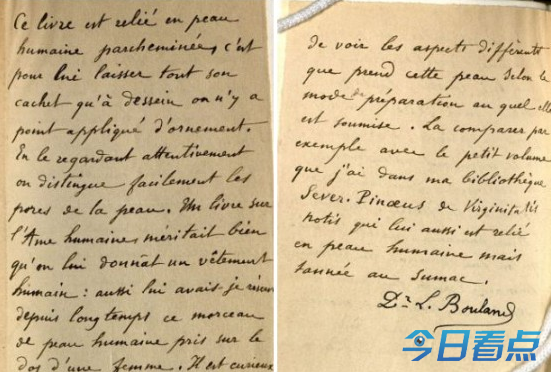 Ce livre est relié en peau
humaine parcheminée, c'est
pour lui laisser tout son
cachet qu'à dessein on n'y a
point appliqué d'ornement.
En le regardant attentivement
on distingue facilement les
pores de la peau. Un livre sur
l'Ame humaine méritait bien
qu'on lui donnât un vêtement
humain : aussi lui avais je réservé
depuis longtemps ce morceau
de peau humaine pris sur le
dos d'une femme. Il est curieux
de voir les aspects différents
que prend cette peau selon le
mode de préparation au quel elle
est soumise. La comparer par
exemple avec le petit volume
que j'ai dans ma bibliothèque
Sever. Pinaeus de Virginitatis
notis qui lui aussi est relié
en peau humaine mais
tannée au sumac.
Dr L. Bouland
今日看点